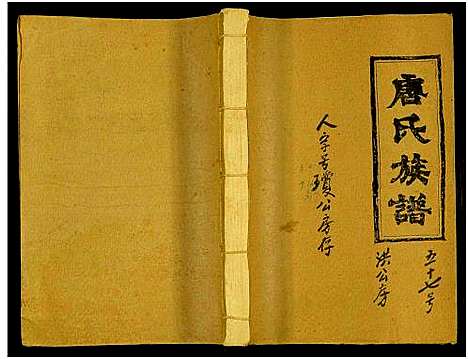 唐氏族譜
五十七号
洪公房
人字号瓊公房存